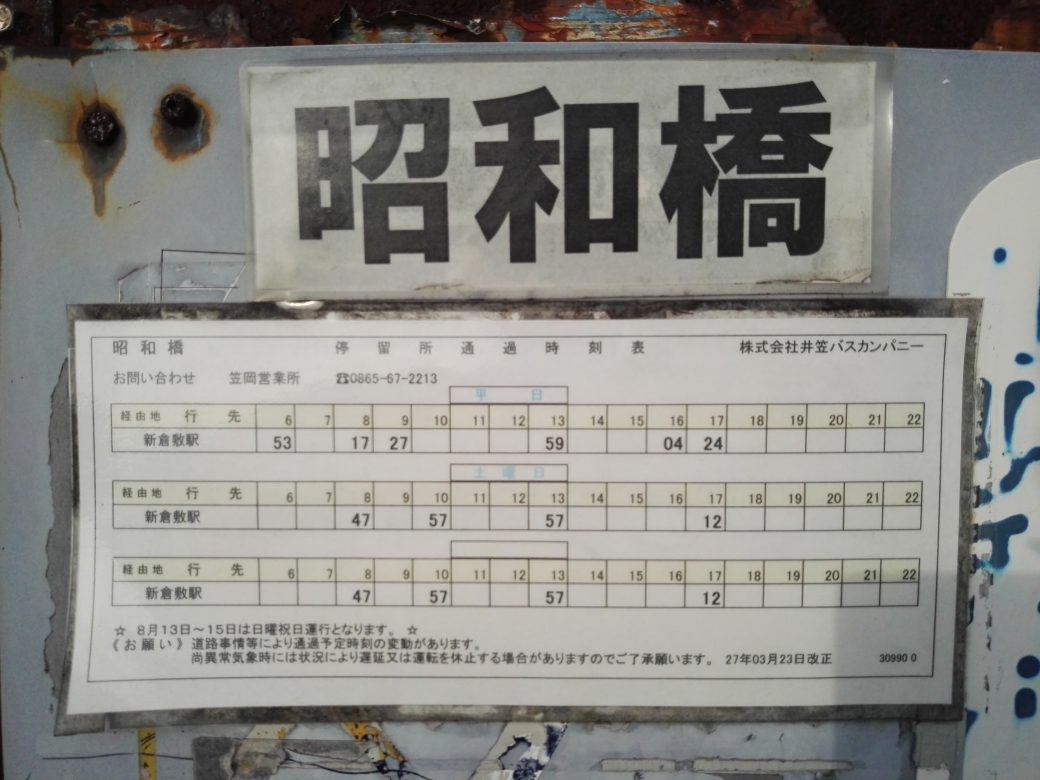 昭和橋
昭和橋 停留所通過時刻表 株式会社井笠バスカンパニー
お問い合わせ 笠岡営業所 ☎0865-67-2213
平日
経由地 行先 6 7 8 9 10 11 12 13 14 15 16 17 18 19 20 21 22
新倉敷駅 53 17 27 59 04 24
土曜日
経由地 行先 6 7 8 9 10 11 12 13 14 15 16 17 18 19 20 21 22
新倉敷駅 47 57 57 12
経由地 行先 6 7 8 9 10 11 12 13 14 15 16 17 18 19 20 21 22
新倉敷駅 47 57 57 12
☆ 8月13日～15日は日曜祝日運行となります。 ☆
《お願い》道路事情等により通過予定時刻の変動があります。
尚異常気象時には状況により遅延又は運転を休止する場合がありますのでご了承願います。 27年03月23日改正 30990 0